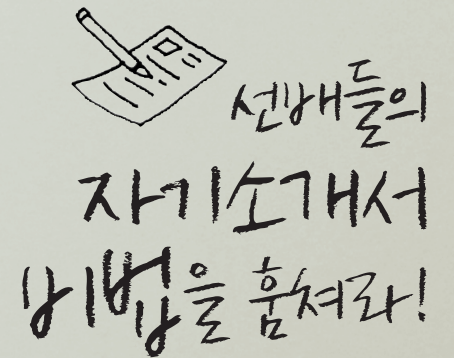 선배들의
자기소개서
비법을 훔쳐라!